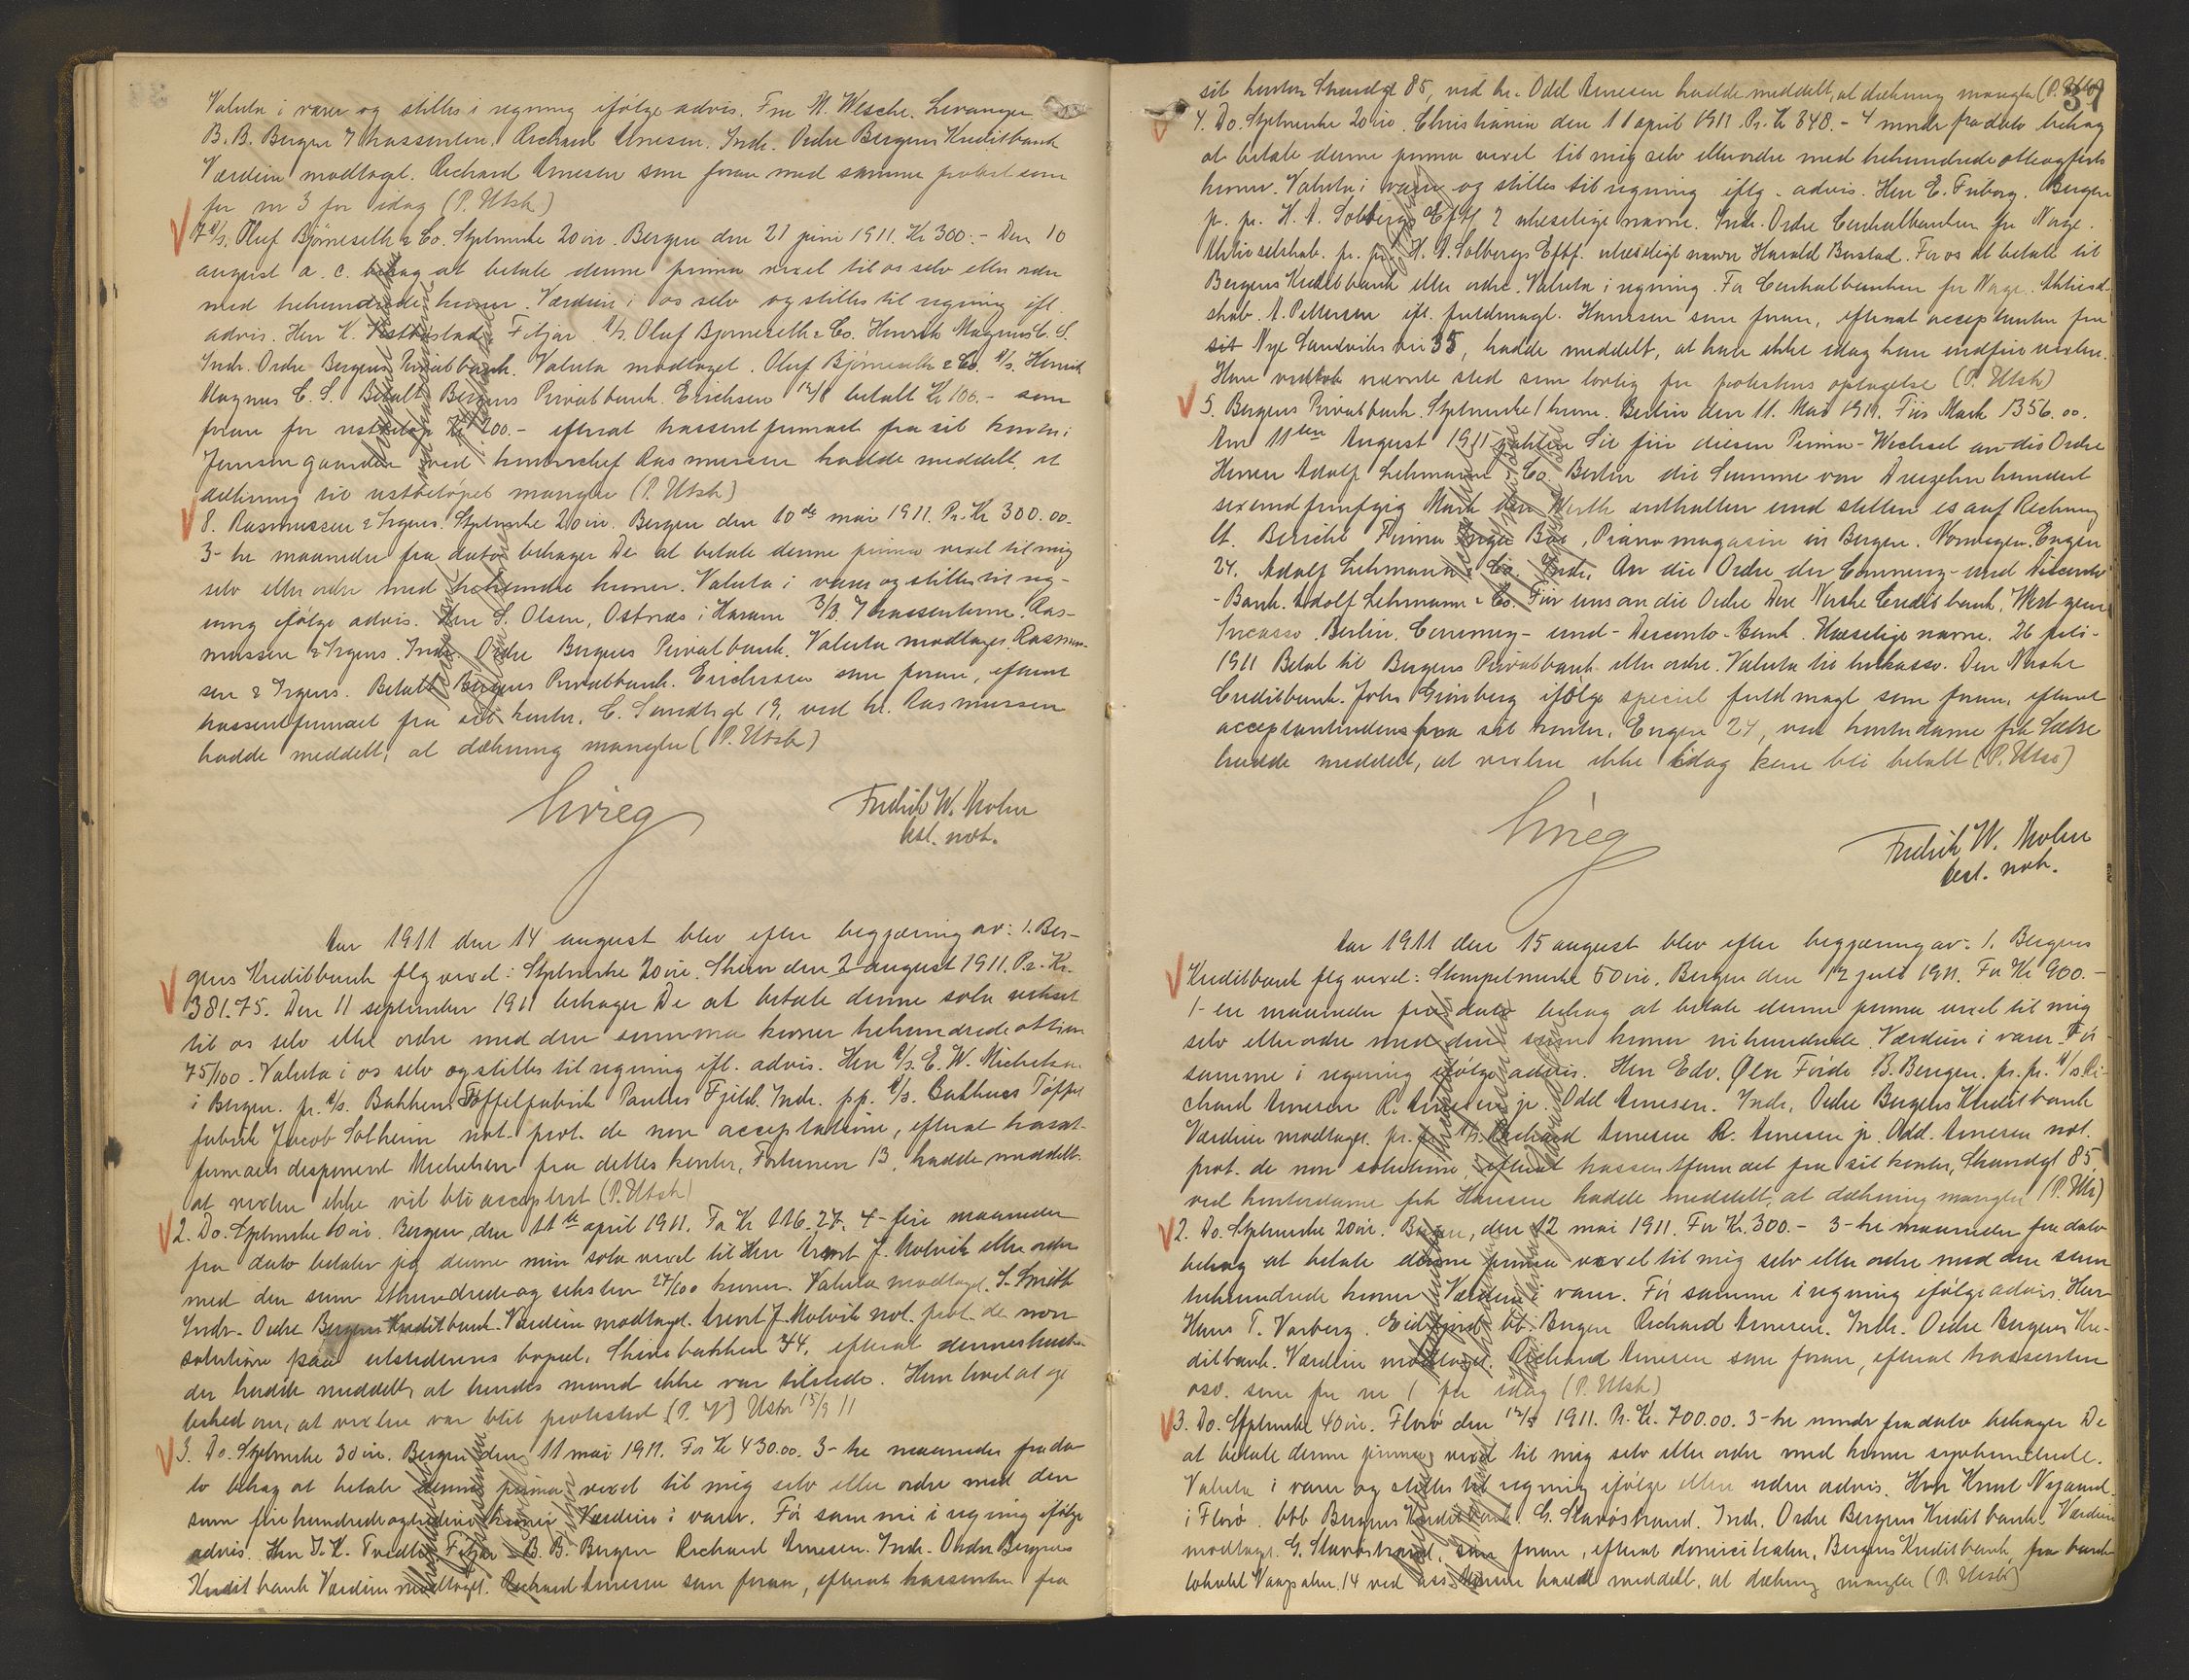 Valuta i varer og stilles i regning ifølge advis. Fru M. Wesche. Levanger.
B. B. Bergen 7 trassenten. Richard Arnesen. Indr. Ordre Bergens Kreditbank
Værdien modtaget. Richard Arnesen som foran med samme protest som
for nr 3 for idag (P. Utsk)
7 A/S. Oluf Bjørneseth & Co. Stplmerke 20 øre. Bergen den 21 juni 1911. Kr 300.- Den 10
august a. c. behag at betale denne prima vexel til os selv eller ordre
med trehundrede kroner. Værdien i os selv og stilles til regning ifl.
advis. Herr K. Vestbøstad Fitjar. A/S. Oluf Bjørneseth & Co. Henrik Magnus C. S.
Indr. Ordre Bergens Privatbank. Valuta modtaget. Oluf Bjørneseth & Co. A/S. Henrik
Magnus C. S. Betalt Bergens Privatbank. Erichsen 12/8 betalt Kr 100.- som
foran for restbeløp Kr 200.- efterat trassentfirmaet fra sit kontor i
Jonsengaarden ved kontorchef Rasmussen hadde meddelt, at
dækning til restbeløpet mangler (P. Utsk)
8. Rasmussen & Irgens. Stplmerke 20 øre. Bergen den 10de mai 1911. Pr. Kr 300.00.
3-tre maaneder fra dato behager De at betale denne prima vexel til mig
selv eller ordre med trehundre kroner. Valuta i varer og stilles til reg-
ning ifølge advis. Herr S. Olsen, Ostnæs i Haram 3/B. 7 trassenterne. Ras-
mussen & Irgens. Indr. Ordre Bergens Privatbank. Valuta modtaget. Rasmus-
sen & Irgens. Betalt Bergens Privatbank. Erichsen som foran, efterat
trassentfirmaet fra sit kontor, C. Sundts gt 19, ved hr. Rasmussen
hadde meddelt, at dækning mangler (P. Utsk)
Grieg
Fredrik W. Mohn
best. not.
Aar 1911 den 14 august blev efter begjæring av: 1. Ber-
gens Kreditbank flg vexel: Stplmerke 20 øre. Skien den 2 august 1911. Pr. Kr.
381.75. Den 11 september 1911 behager De at betale denne sola vexel
til os selv eller ordre med den summa kroner trehundrede ottien
75/100. Valuta i os selv og stilles til regning ifl. advis. Herr A/S. E. W. Michelsen
i Bergen. pr. A/S. Bakkens Tøffelfabrik Paulus Fjeld. Indr. pp. A/S. Bakkens Tøffel
fabrik Jacob Solheim not. prot. de non acceptatione, efterat trasat-
firmaets disponent Michelsen fra dettes kontor, Fortunen 13, hadde meddelt
at vexlen ikke vil bli acceptert (P. Utsk)
2. Do. Stplmerke 10 øre. Bergen, den 11te april 1911. Fr. Kr 116.27. 4-fire maaneder
fra dato betaler jeg denne min sola vexel til Herr Arent J. Molvik eller ordre
med den sum ethundrede og seksten 27/100 kroner. Valuta modtaget. S. Smith
Indr. Ordre Bergens Kreditbank. Værdien modtaget. Arent J. Molvik not. prot. de non
solutione paa utstederens bopæl, Skivebakken 34, efterat dennes hustru
der hadde meddelt, at hendes mand ikke var tilstede. Hun lovet at gi
besked om, at vexlen var blit protestert (P. V) Utskr 15/9 11
3. Do. Stplmerke 30 øre. Bergen den 11 mai 1911. For Kr 430.00. 3-tre maaneder fra da-
to behag at betale denne prima vexel til mig selv eller ordre med den
sum firehundredeogtredive kroner Værdien i varer. Før samme i regning ifølge
advis. Herr J. K. Tvedt Fitjar B. B. Bergen Richard Arnesen. Indr. Ordre Bergens
Kreditbank Værdien modtaget. Richard Arnesen som foran, efterat trassenten fra
37
sit kontor Strandgt 85, ved hr. Odd Arnesen hadde meddelt, at dækning mangler (P. Utsk)
4. Do. Stplmerke 20 øre. Christiania den 11 april 1911. Pr. Kr 348.- 4 mndr fra dato behag
at betale denne prima vexel til mig selv eller ordre med trehundrede otteogførti
kroner. Valuta i varer og stilles til regning iflg. advis. Herr E. Friborg. Bergen
p. pr. H. A. Solbergs Eftf 2 ulæselige navne. Indr. Ordre Centralbanken for Norge.
Aktieselskab. pr. pr. H. A. Solbergs Eftf. ulæseligt navn Harald Barstad. For os at betale til
Bergens Kreditbank eller ordre. Valuta i regning. For Centralbanken for Norge. Aktiesel-
skab. A. Pettersen ifl. fuldmagt. Hansen som foran, efterat acceptanten fra
sit Nye Sandviks vei 35, hadde meddelt, at han ikke idag kan indfri vexlen.
Han vedtok nævnte sted som lovlig for protestens optagelse (P. Utsk)
5. Bergens Privatbank. Stplmerke 1 krone. Berlin den 11. Mai 1911. Für Mark 1356.00.
Am 11ten August 1911 zahlen Sie für diesen Prima-Wechsel an die Ordre
Herren Adolf Lehmann & Co. Berlin die Summe von Dreizehnhundert
sexundfünfzig Mark den Werth enthalten und stellen es auf Rechnung
lt. Bericht Firma Inga Bøe, Pianomagasin in Bergen. Norwegen. Engen
24. Adolf Lehmann & Co. Indr. An die Ordre der Commerz- und Disconto
-Bank. Adolf Lehmann & Co. Für uns an die Ordre Den Norske Creditbank, Wert zum
Incasso. Berlin. Commerz- und- Disconto-Bank. Ulæselige navne. 26 juli
1911 Betal til Bergens Privatbank eller ordre. Valuta til Inkasso. Den Norske
Creditbank. John Grønberg ifølge speciel fuldmagt som foran, efterat
acceptantinden fra sit kontor, Engen 24, ved kontordame frk Sætre
hadde meddelt, at vexlen ikke idag kan bli betalt (P. Utsk)
Grieg
Fredrik W. Mohn
best. not.
Aar 1911 den 15 august blev efter begjæring av: 1. Bergens
Kreditbank flg vexel: Stempelmerke 50 øre. Bergen den 12 juli 1911. For Kr 900.-
1-en maaneder fra dato behag at betale denne prima vexel til mig
selv eller ordre med den sum kroner nihundrede. Værdien i varer. Før
samme i regning ifølge advis. Herr Edv. Øen Førde B. Bergen. pr. pr. A/S. Ri-
chard Arnesen R. Arnesen jr. Odd Arnesen. Indr. Ordre Bergens Kreditbank
Værdien modtaget. pr. pr. A/S. Richard Arnesen R. Arnesen jr. Odd. Arnesen not.
prot. de non solutione, efterat trassentfirmaet fra sit kontor, Strandgt 85,
ved kontordame frk Hansen hadde meddelt, at dækning mangler (P. Uts)
2. Do. Stplmerke 20 øre. Bergen, den 12 mai 1911. For Kr. 300.- 3-tre maaneder fra dato
behag at betale denne prima vexel til mig selv eller ordre med den sum
trehundrede kroner Værdien i varer. Før samme i regning ifølge advis. Herr
Hans T. Varberg. Eidfjord bt. Bergen Richard Arnesen. Indr. Ordre Bergens Kre-
ditbank. Værdien modtaget. Richard Arnesen som foran, efterat trassenten
osv. som for nr 1 for idag (P. Utsk)
3. Do. Stplmerke 40 øre. Florø den 12/5 1911. Pr. Kr. 700.00. 3-tre mndr fra dato behager De
at betale denne prima vexel til mig selv eller ordre med kroner syvhundrede.
Valuta i varer og stilles til regning ifølge eller uden advis. Herr Knut Nygaard
i Florø. bt Bergens Kreditbank. G. Stavøstrand. Indr. Ordre Bergens Kreditbank. Værdien
modtaget. G. Stavøstrand, som foran, efterat domiciliaten, Bergens Kreditbank, fra bank-
lokalet Vaagsalm. 14 ved ass. hadde meddelt, at dækning mangler (P. Utsk)